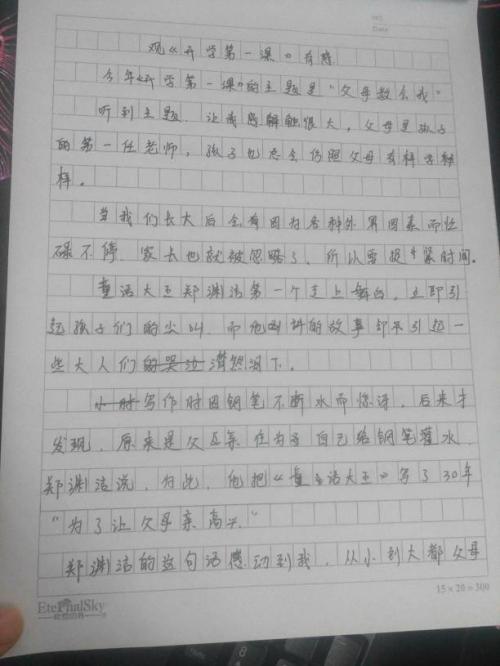 NO.
Date
观《开学第一课》有感
今年《开学第一课》的主题是"父母教会我"
听到主题.让我感触很大,父母是孩子
的第一任老师,孩子也总会仿照父母有样学
样。
当我们长大后会有因为各种外界因素而忙
碌不停.家长也就被忽略了.所以要抓紧时间.
童话大王郑渊洁第一个走上舞台,立即引
起孩子们的尖叫.而他所讲的故事却引起一
些大人们的哭泣潸然泪下.
小时写作时因钢笔不断水而惊讶.后来才
发现.原来是父亲每在为自己给钢笔灌水.
郑渊洁说.为此.他把《童话大王》写了30年
"为了让父母亲高兴."
郑渊洁的这句话感动到我.从小到大都父母
EtePhalSky
15×20=300